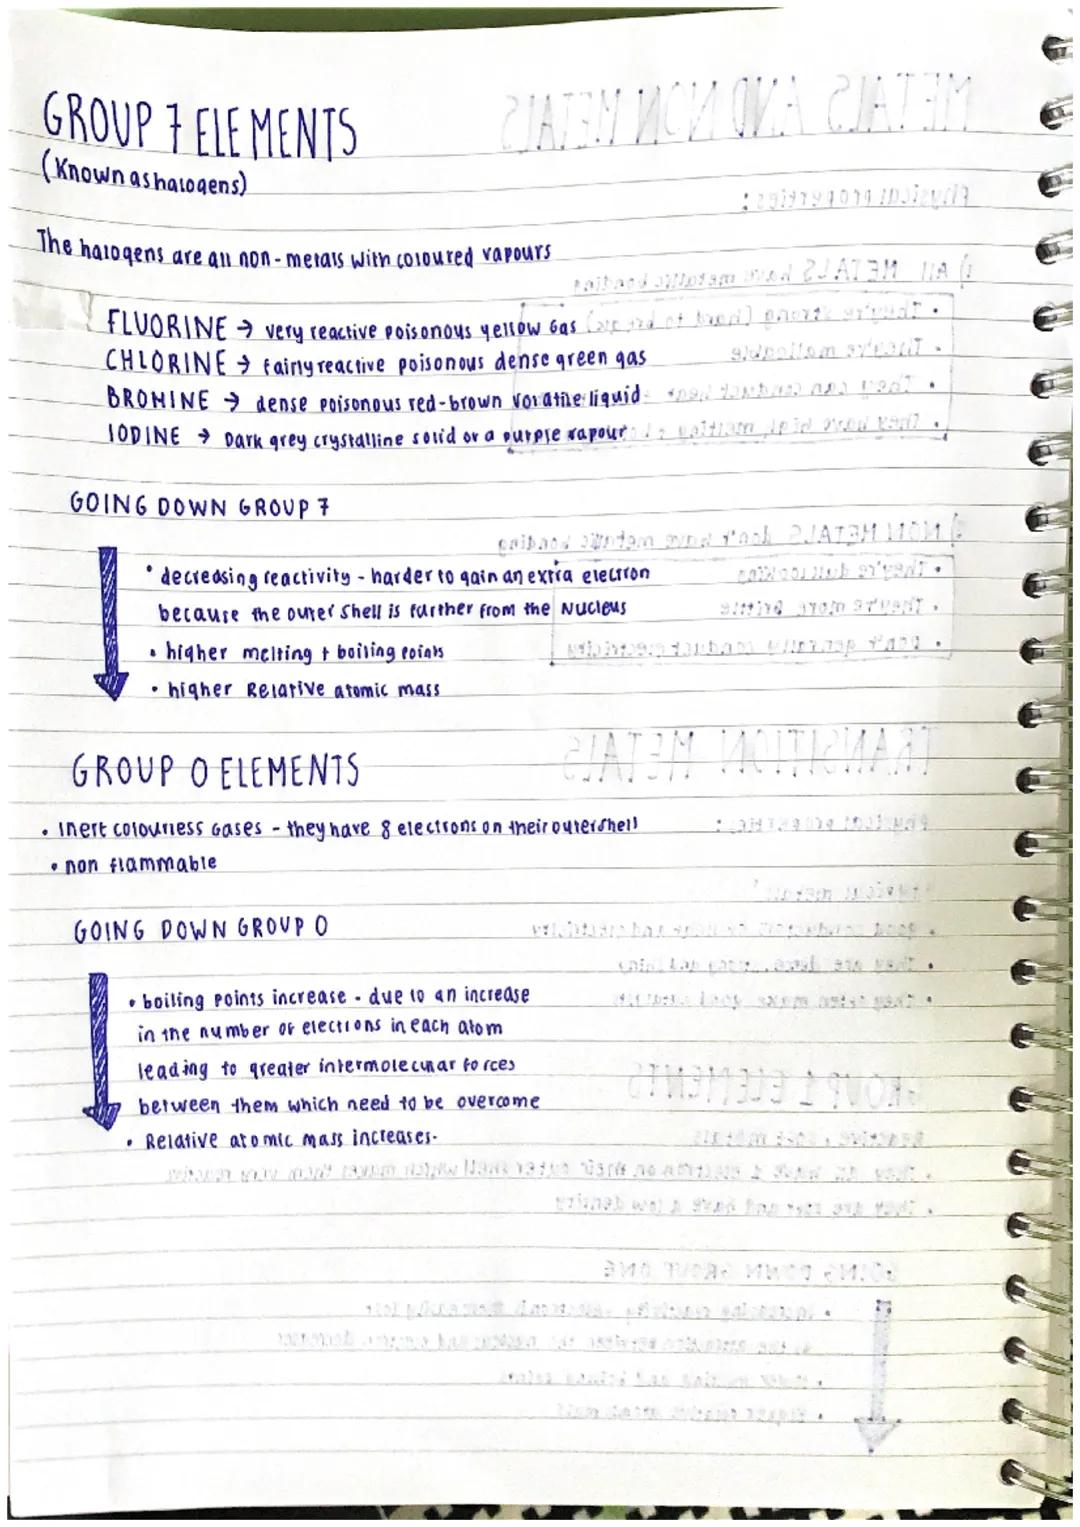 GROUP 7 ELEMENTS
(Known as halogens)
The halogens are all non-metals with coloured vapours
FLUORINE → very reactive poisonous yellow Gas
CHLORINE → fairly reactive poisonous dense green gas
BROMINE → dense poisonous red-brown volatile liquid
IODINE → Dark grey crystalline solid or a purple vapour
GOING DOWN GROUP 7
• decreasing reactivity - harder to gain an extra electron
because the outer shell is further from the Nucleus
• higher melting + boiling points
• higher Relative atomic mass
GROUP 0 ELEMENTS
• Inert colourless Gases - they have 8 electrons on their outershell
• non flammable
GOING DOWN GROUP 0
• boiling points increase - due to an increase
in the number of electrons in each atom
leading to greater intermolecular forces
between them which need to be overcome
• Relative atomic mass increases.